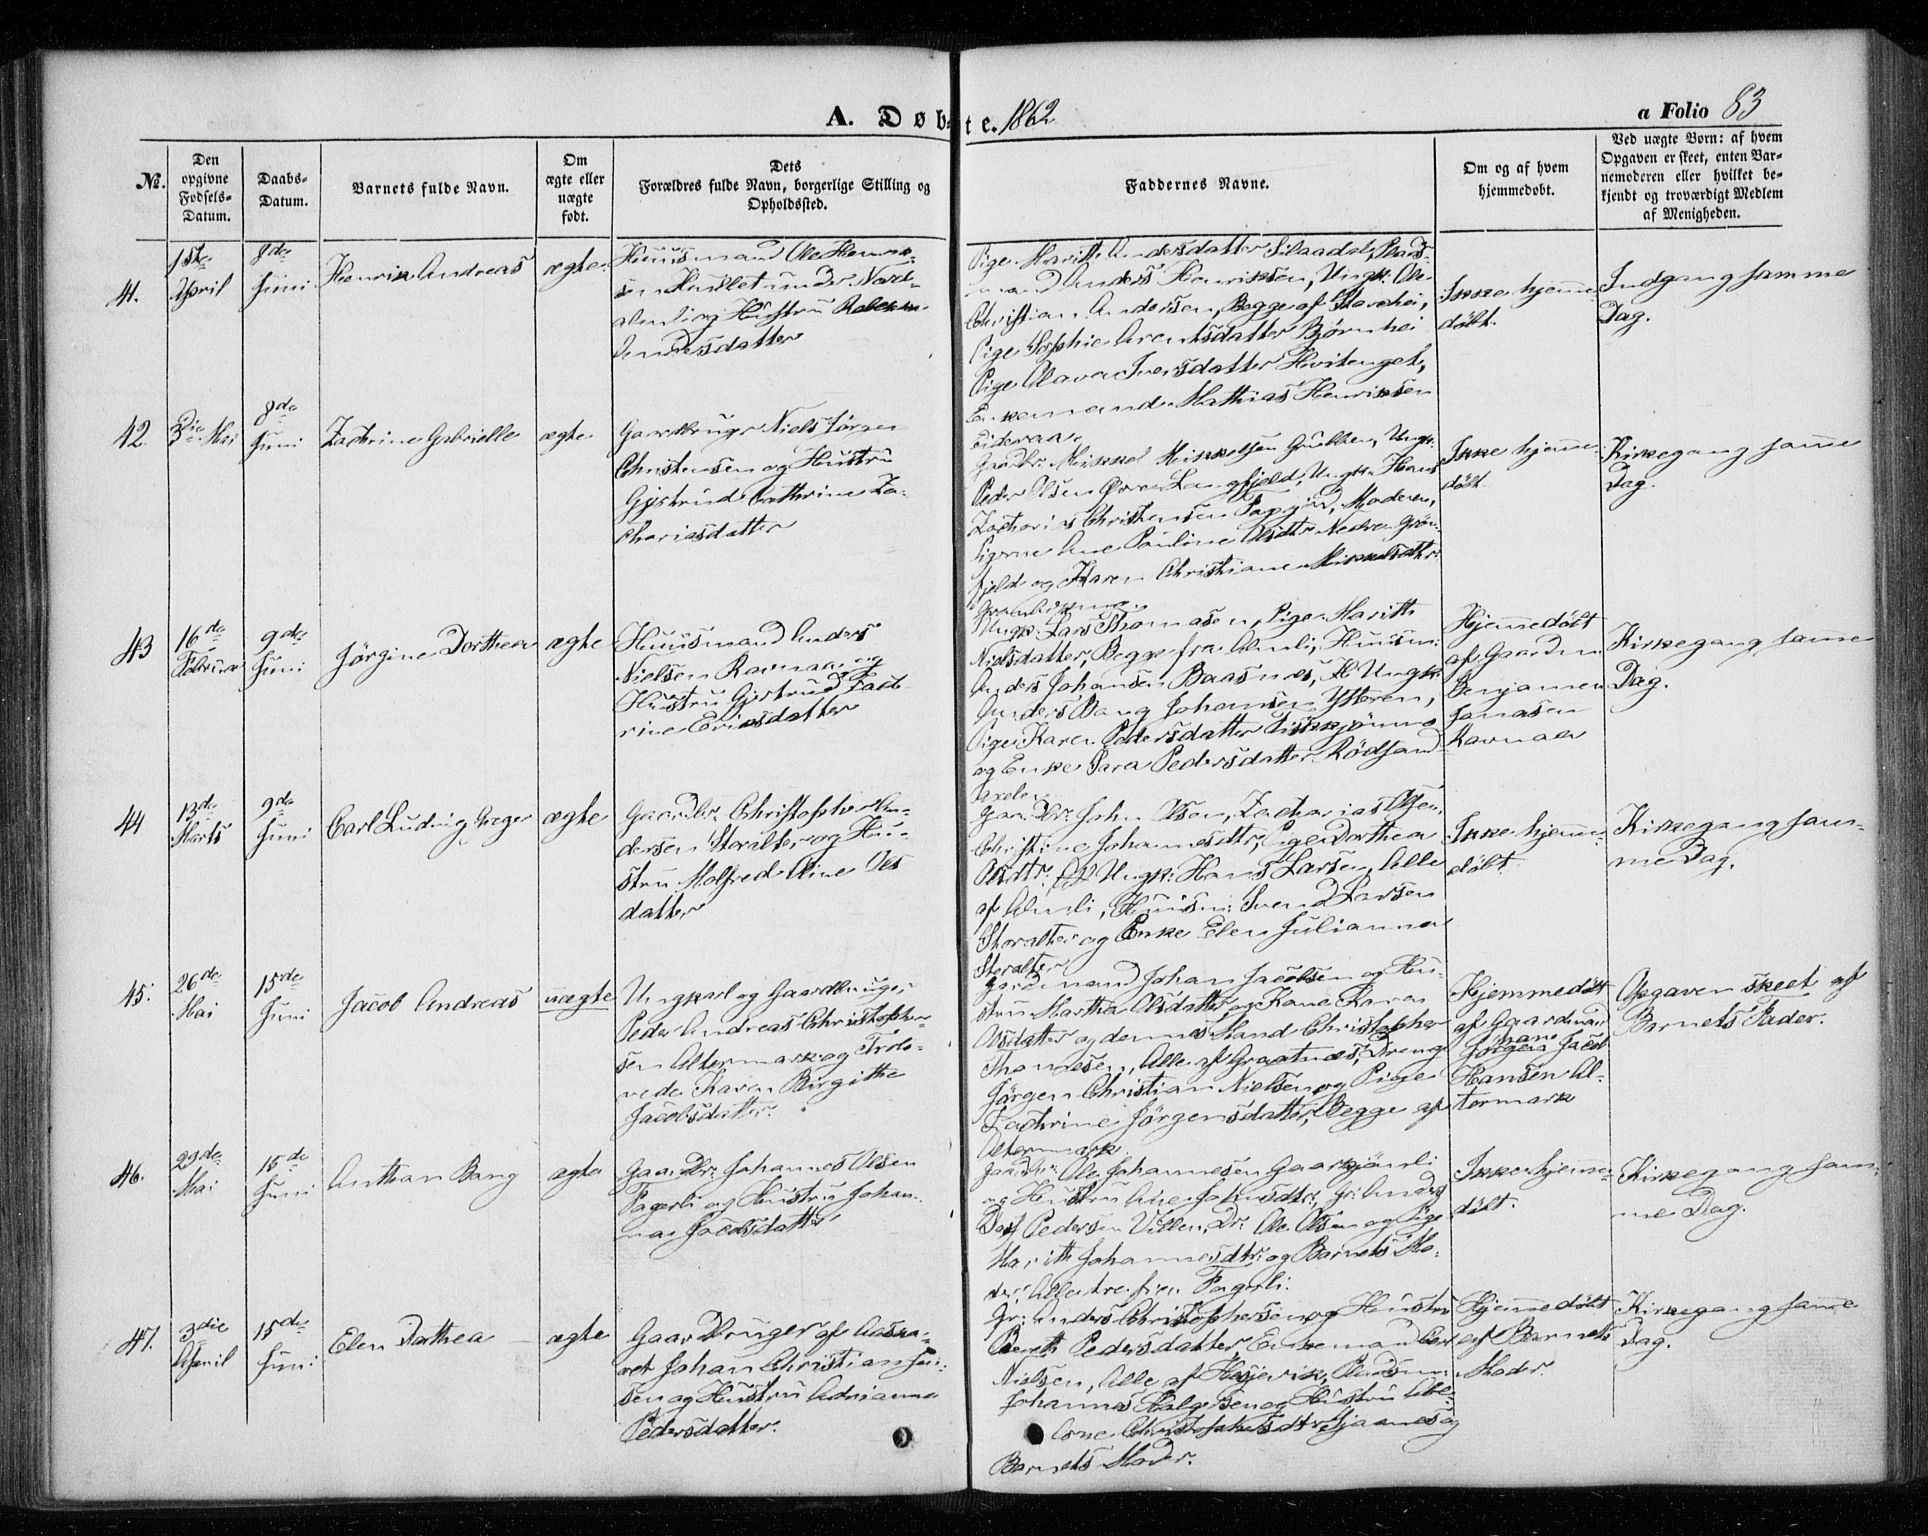 A. Døbte. 1862
a Folio 83
No.
Den opgivne Fødsels-Datum.
Daabs-Datum.
Barnets fulde Navn.
Om ægte eller uægte født.
Dets Forældres fulde Navn, borgerlige Stilling og Opholdssted.
Faddernes Navne.
Om og af hvem hjemmedøbt.
Ved uægte Born: af hvem Opgaven er skeet, enten Barnemoderen eller hvilket bekjendt og troværdigt Medlem af Menigheden.
41.
1ste
April
8de
Juni
Henrik Andreas
ægte
Huusmand Ole Henrik-
sen
og Hustru
Andersdatter
Pige Marith Andersdatter
mand Anders Henriksen, Ungk. Ole
Christian Andersen, Begge af
Pige Sophie Arentsdatter Bjørnhei
Pige Olava Iversdatter Hvitenget,
Enkemand Mathias Henriksen
Eideraa.
Ikke hjemme
døbt.
Indgang samme
Dag.
42.
3die Mai
8de
Juni
Zachrine Gabrielle
ægte
Gaardbruger Niels Jørgen
Christensen og Hustru
Gjertrud Cathrine Za-
chariasdatter
Gaardbr. Mikkel Mikkelsen Ungk.
Peder Olsen Øvre Langfjeld, Ungk. Hans
Zacharias Christensen Moderen,
Pigerne Ane Pauline Olsdtr. Nedre Grøn-
fjeld og Karen Christiane Mikkelsdtr.
Ikke hjemme-
døbt
Kirkegang samme
Dag.
43
16de
Februar
9de
Juni
Jørgine Dorthea
ægte
Huusmand Anders
Nielsen Ravnaa og
Hustru Gjertrud
rine Ericsdatter
Ungk. Lars Thomasen, Pige Marith
Nielsdatter, Begge fra Huusm:
Anders Johansen Baasnes, Ungk.
Anders Bang Johansen Ytteren,
Pige Karen Pedersdatter
og Enke Sara Pedersdatter Rødsand
Hjemmedøbt
af Gaardm
Benjamen
Jonasen
Ravnaa
Kirkegang samme
Dag.
44
13de
Marts
9de
Juni
Carl Ludvig Greger
ægte
Gaardbr. Christopher An-
dersen Storalter og Hu-
stru Malfred Oline Ols
datter
Gaardbr. John Olsen, Zacharias Olsen,
Christine Johannesdtr, Pige Dorthea
Olsdtr, Ungk: Hans Larsen, Alle
af Huusm: Svend Larsen
Storalter og Enke Elen Julianna
Storalter
Ikke hjemme-
døbt
Kirkegang sam-
me Dag.
45.
26de
Mai
15de
Juni
Jacob Andreas
uægte
Ungkarl og Gaardbruger
Peder Andreas Christopher-
sen Altermark og Trolo-
vede Karen Birgithe
Jacobsdatter.
Gaardmand Johan Jacobsen og Hu-
stru Martha Olsdatter, og Kone Karen
Olsdatter og dennes Mand Christopher
Thomesen, Alle af Graatnes, Dreng
Jørgen Christian Nielsen og Pige
Zachrine Jørgensdatter, Begge af
Altermark
Hjemmedøbt
af Gaardmand
Jørgen Jacob
Hansen Al-
termark
Opgaven skeet af
Barnets Fader.
46.
29de
Mai
15de
Juni
Anthon Bang
ægte
Gaardbr: Johannes Olsen
Fagerli og Hustru Johan-
na Jacobsdatter
Gaardbr. Ole Johannesen
og Hustru Ane Johnsdtr, Gr: Anders
Dass Pedersen Villen, Dr: Ole Olsen og Pige
Marith Johannesdtr. og Barnets Mo-
der, Alle tre fra Fagerli.
Ikke hjemme-
døbt.
Kirkegang sam-
me Dag.
47.
3die
April
15de
Juni
Elen Dorthea
ægte
Gaardbruger af
Johan Christian Jen-
sen og Hustru Adrianna
Pedersdatter.
Gr: Anders Christophersen og Hustru
Bereth Pedersdatter, Enkemand
Nielsen, Alle af
Johannes Helgesen og Hustru
Christophersdtr. og
Barnets Moder.
Hjemmedøbt
af Barnets
Moder.
Kirkegang samme
Dag.